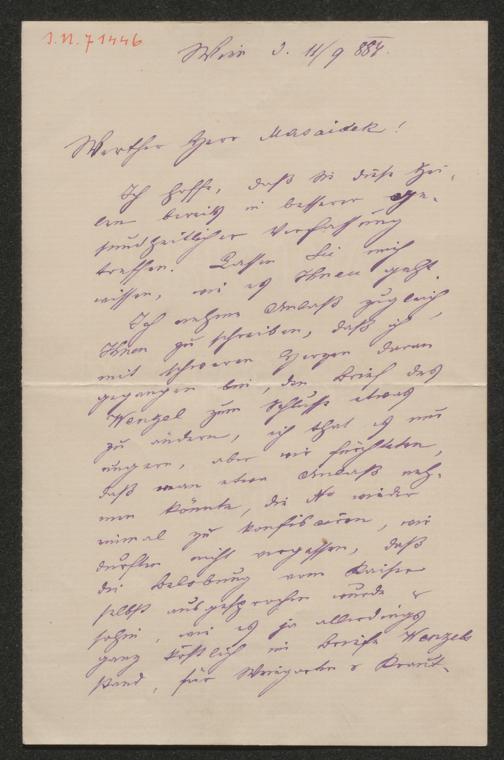 I.N. 71446
Wien d. 11/9 884.
Werther Herr Masaidek!
Ich hoffe, daß Sie diese Zei-
len bereits in besserer Ge-
sundheitlicher Verfassung
treffen. Lassen Sie mich
wissen, wie es Ihnen geht.
Ich nehme Anlaß zugleich
Ihnen zu schreiben, daß ich
mit schwerem Herzen daran
gegangen bin, den Brief des
Wenzel zum Schluße etwas
zu ändern, ich that es nur
ungern, aber wir fürchteten,
daß man etwa Anlaß neh-
men könnte, die No wieder
einmal zu konfisciren, wir
durften nicht vergessen, daß
die Belobung vom Kaiser
selbst ausgesprochen wurde &
sohin, wie es ja allerdings
ganz köstlich im Briefe Wenzels
stand, für Weingarten & Kraut-